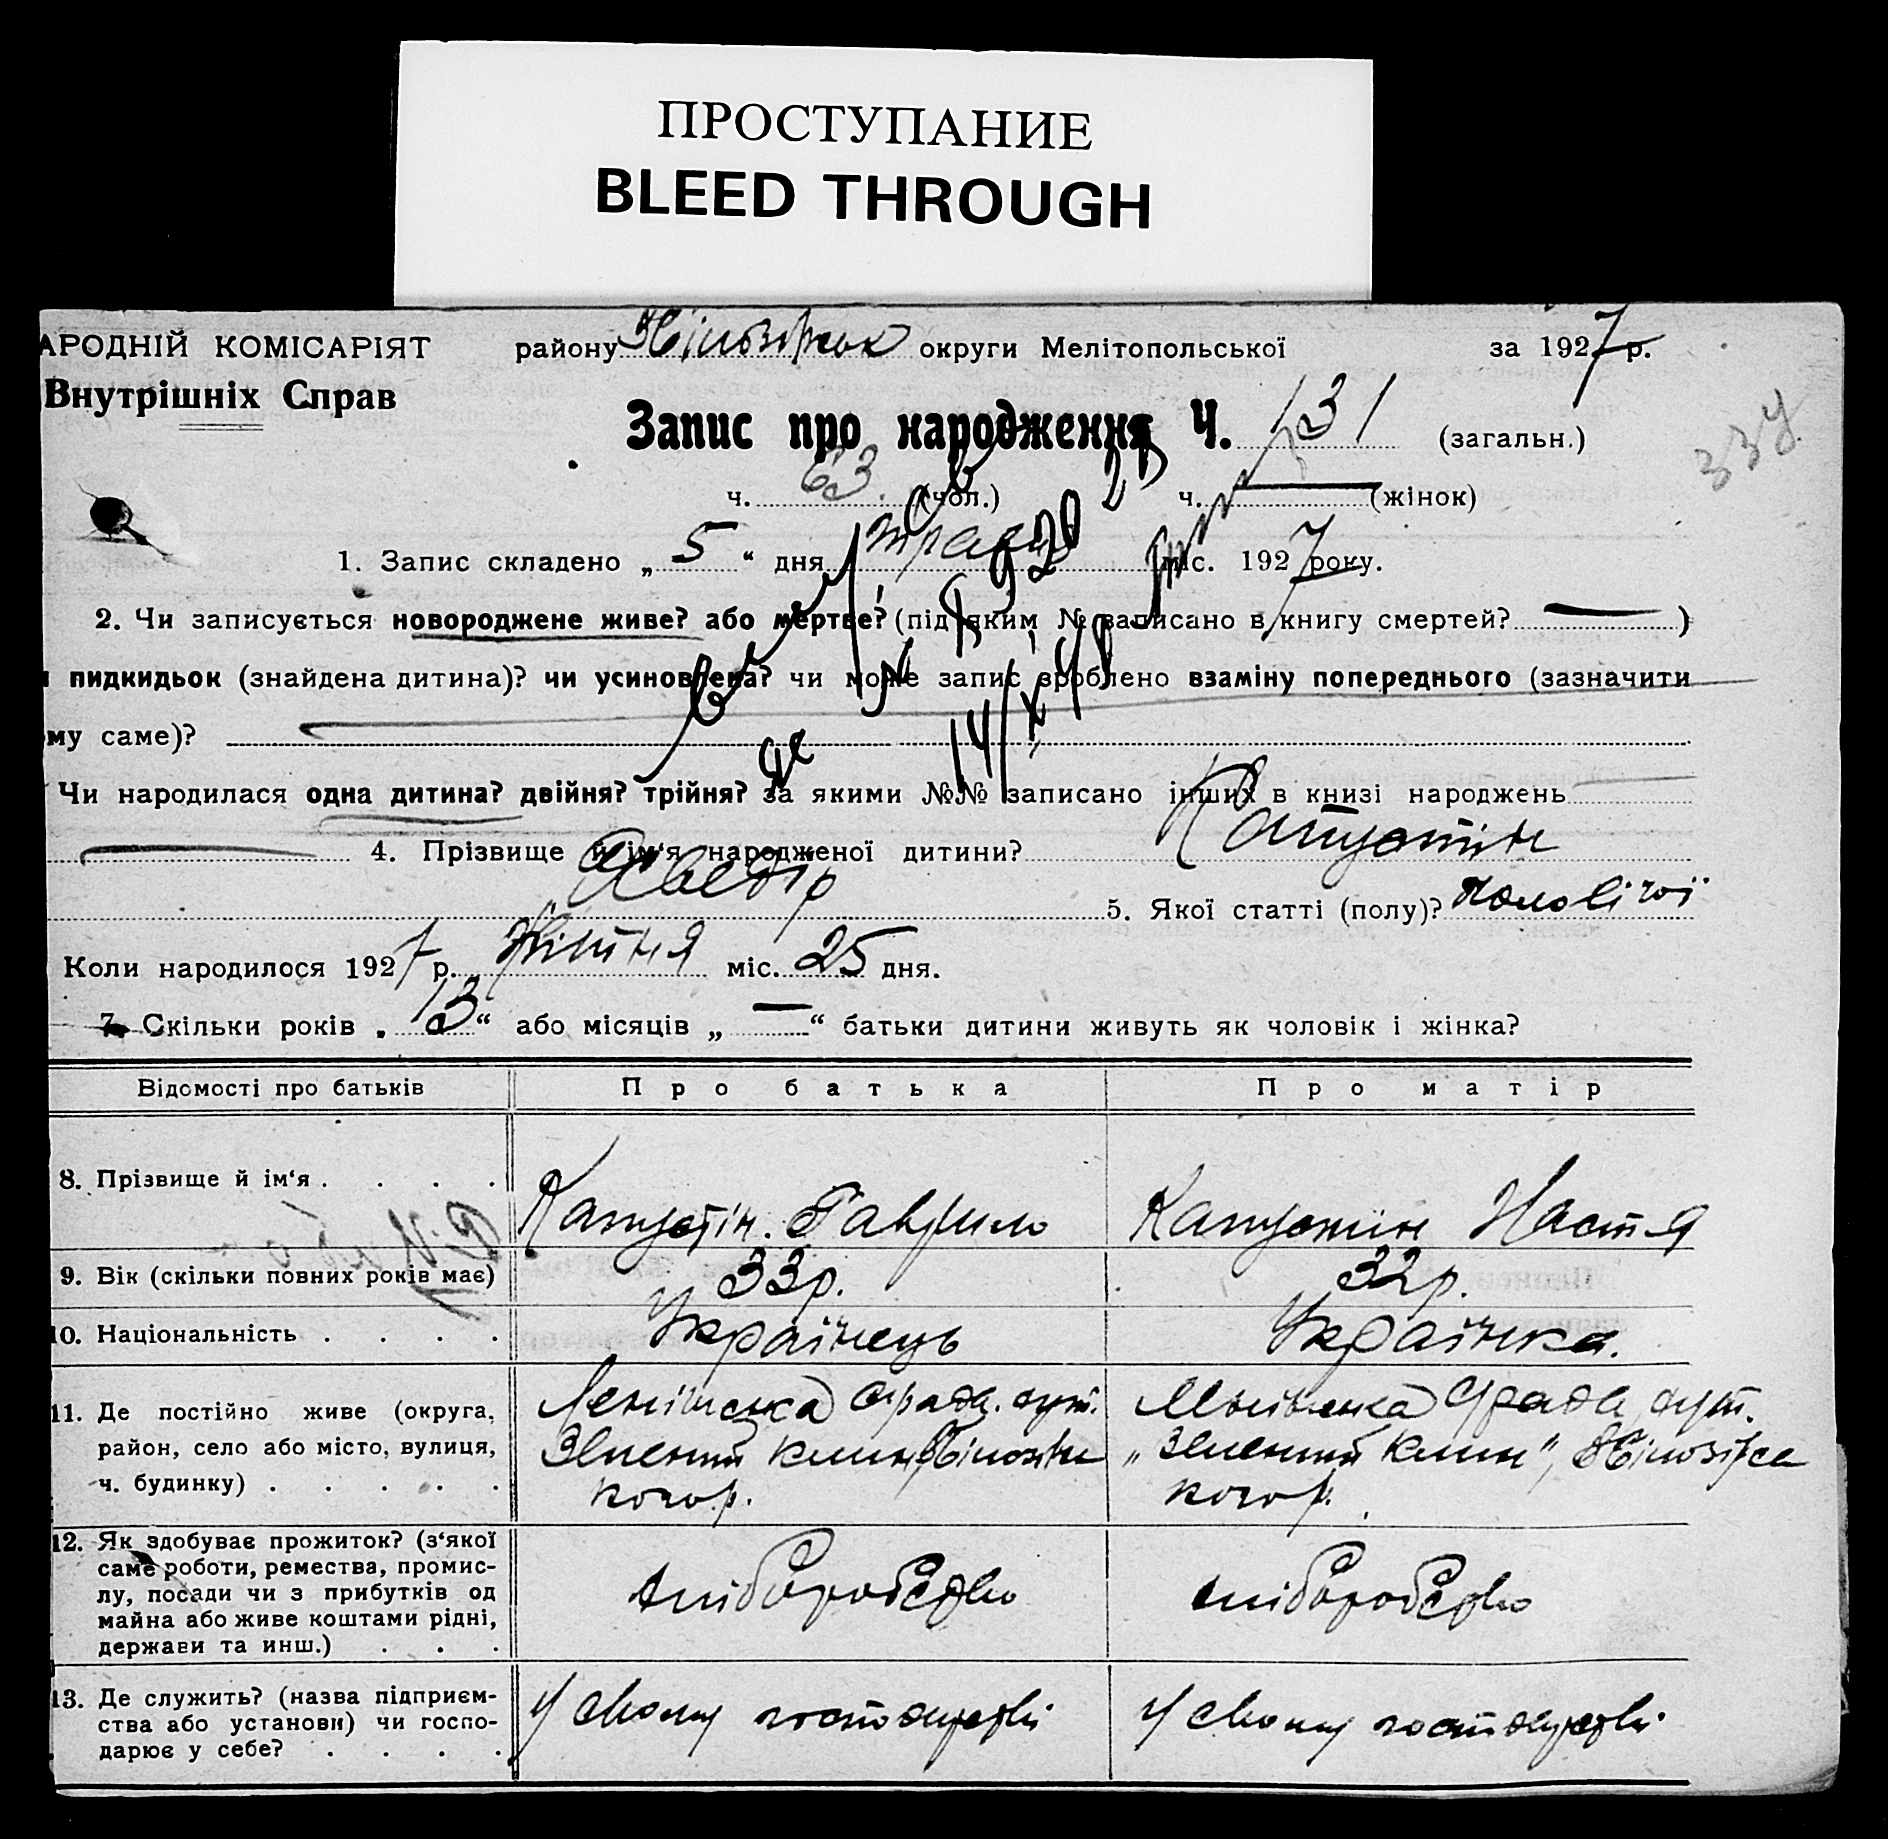 ПРОСТУПАНИЕ
BLEED THROUGH
АРОДНІЙ КОМІСАРІЯТ району округи Мелітопольської за 1927 р.
Внутрішніх Справ
Запис про народження Ч. 131 (загальн.)
334
ч. 63. (чол.) ч. — (жінок)
1. Запис складено „ 5 “ дня травня міс. 1927 року.
2. Чи записується новороджене живе? або мертве? (під яким № записано в книгу смертей? — )
пидкидьок (знайдена дитина)? чи усиновлена? чи може запис зроблено взаміну попереднього (зазначити
му саме)?
14/X 48
Чи народилася одна дитина? двійня? трійня? за якими №№ записано інших в книзі народжень
4. Прізвище й ім‘я народженої дитини? Капустін
5. Якої статті (полу)? чоловічої
Коли народилося 1927 р. квітня міс. 25 дня.
7. Скільки років „ 13 “ або місяців „ — “ батьки дитини живуть як чоловік і жінка?
Відомості про батьків Про батька Про матір
8. Прізвище й ім‘я . . . . Капустін Гаврило Капустін Настя
9. Вік (скільки повних років має) 33 р. 32 р.
10. Національність . . . . Українець Українка.
11. Де постійно живе (округа, Ленінська срада. хут. срада хут.
район, село або місто, вулиця, Зелений клин „Зелений клин“,
ч. будинку) . . . . .
12. Як здобуває прожиток? (з‘якої
саме роботи, ремества, промис-
лу, посади чи з прибутків од хліборобство хліборобство
майна або живе коштами рідні,
держави та инш.) . . .
13. Де служить? (назва підприєм-
ства або установи) чи госпо- У своому господарстві У своому господарстві
дарює у себе? . . . .